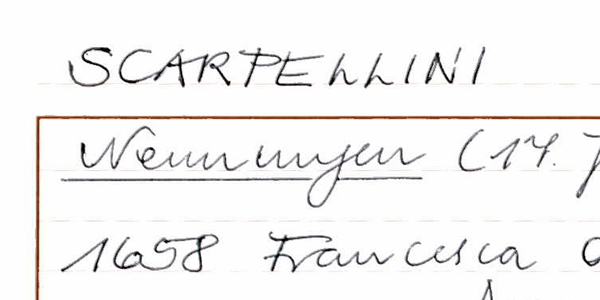 SCARPELLINI
Nenningen (17. J
1658 Francesca